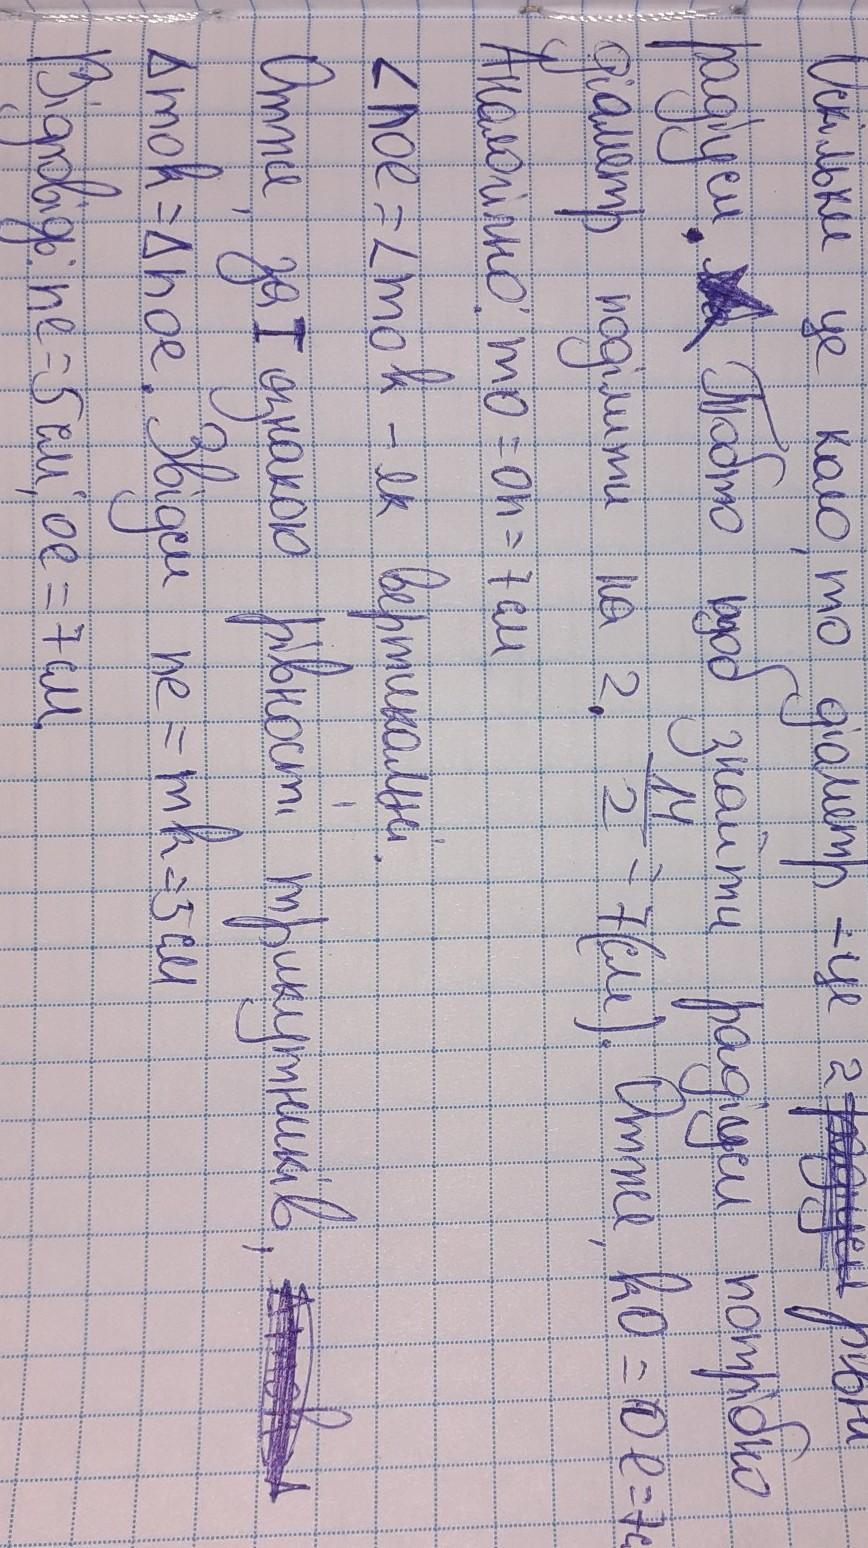 Оскільки це коло, то діаметр - це 2 рівні
радіуси. Тобто щоб знайти радіуси потрібно
діаметр поділити на 2. 14/2 = 7(см). Отже, kO = Oe = 7с
Аналогічно: mO = On = 7 см
∠nOe = ∠mOk - як вертикальні.
Отже, за I ознакою рівності трикутників,
Δmok = Δnoe. Звідси ne = mk = 5 см
Відповідь: ne = 5 см, oe = 7 см.